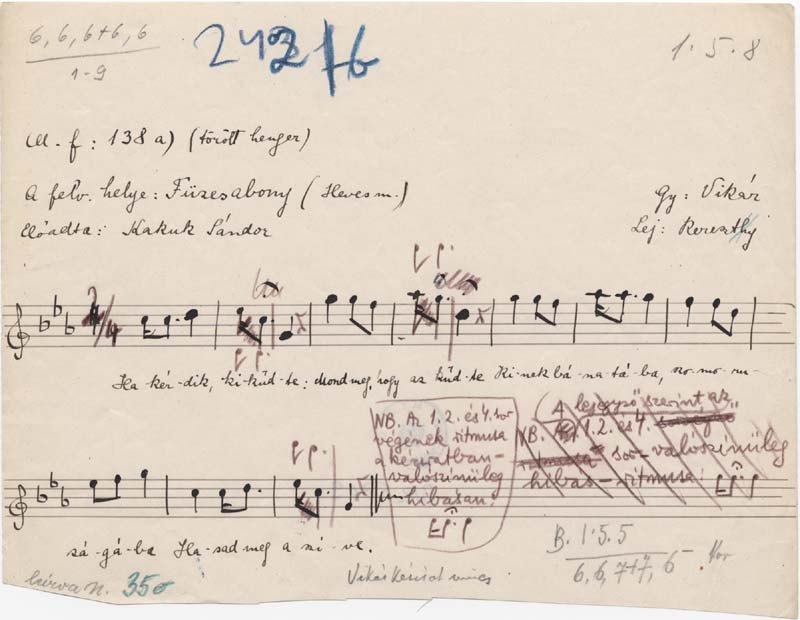 6, 6, 6+6, 6
1-9
1·5·8
M. f: 138 a) (törött henger)
A felv. helye: Füzesabony (Heves m.)
Gy: Vikár
Előadta: Kakuk Sándor
Lej: Kereszthy
2/4
Ha kér-dik, ki küd-te: Mond meg, hogy az küd-te Ki-nek bá-na-tá-ba, szo-mo-ru-
NB. Az 1. 2. és 4. sor
végének ritmusa
a kéziratban
valószínűleg
hibásan!
A lejegyző szerint az
NB. 1. 2. és 4.
sor valószínűleg
hibás ritmusa!
sá-gá-ba Ha-sad meg a szi-ve.
B. 1·5.5
6, 6, 7+7, 6
leírva n. 350
Vikár kézirat nincs